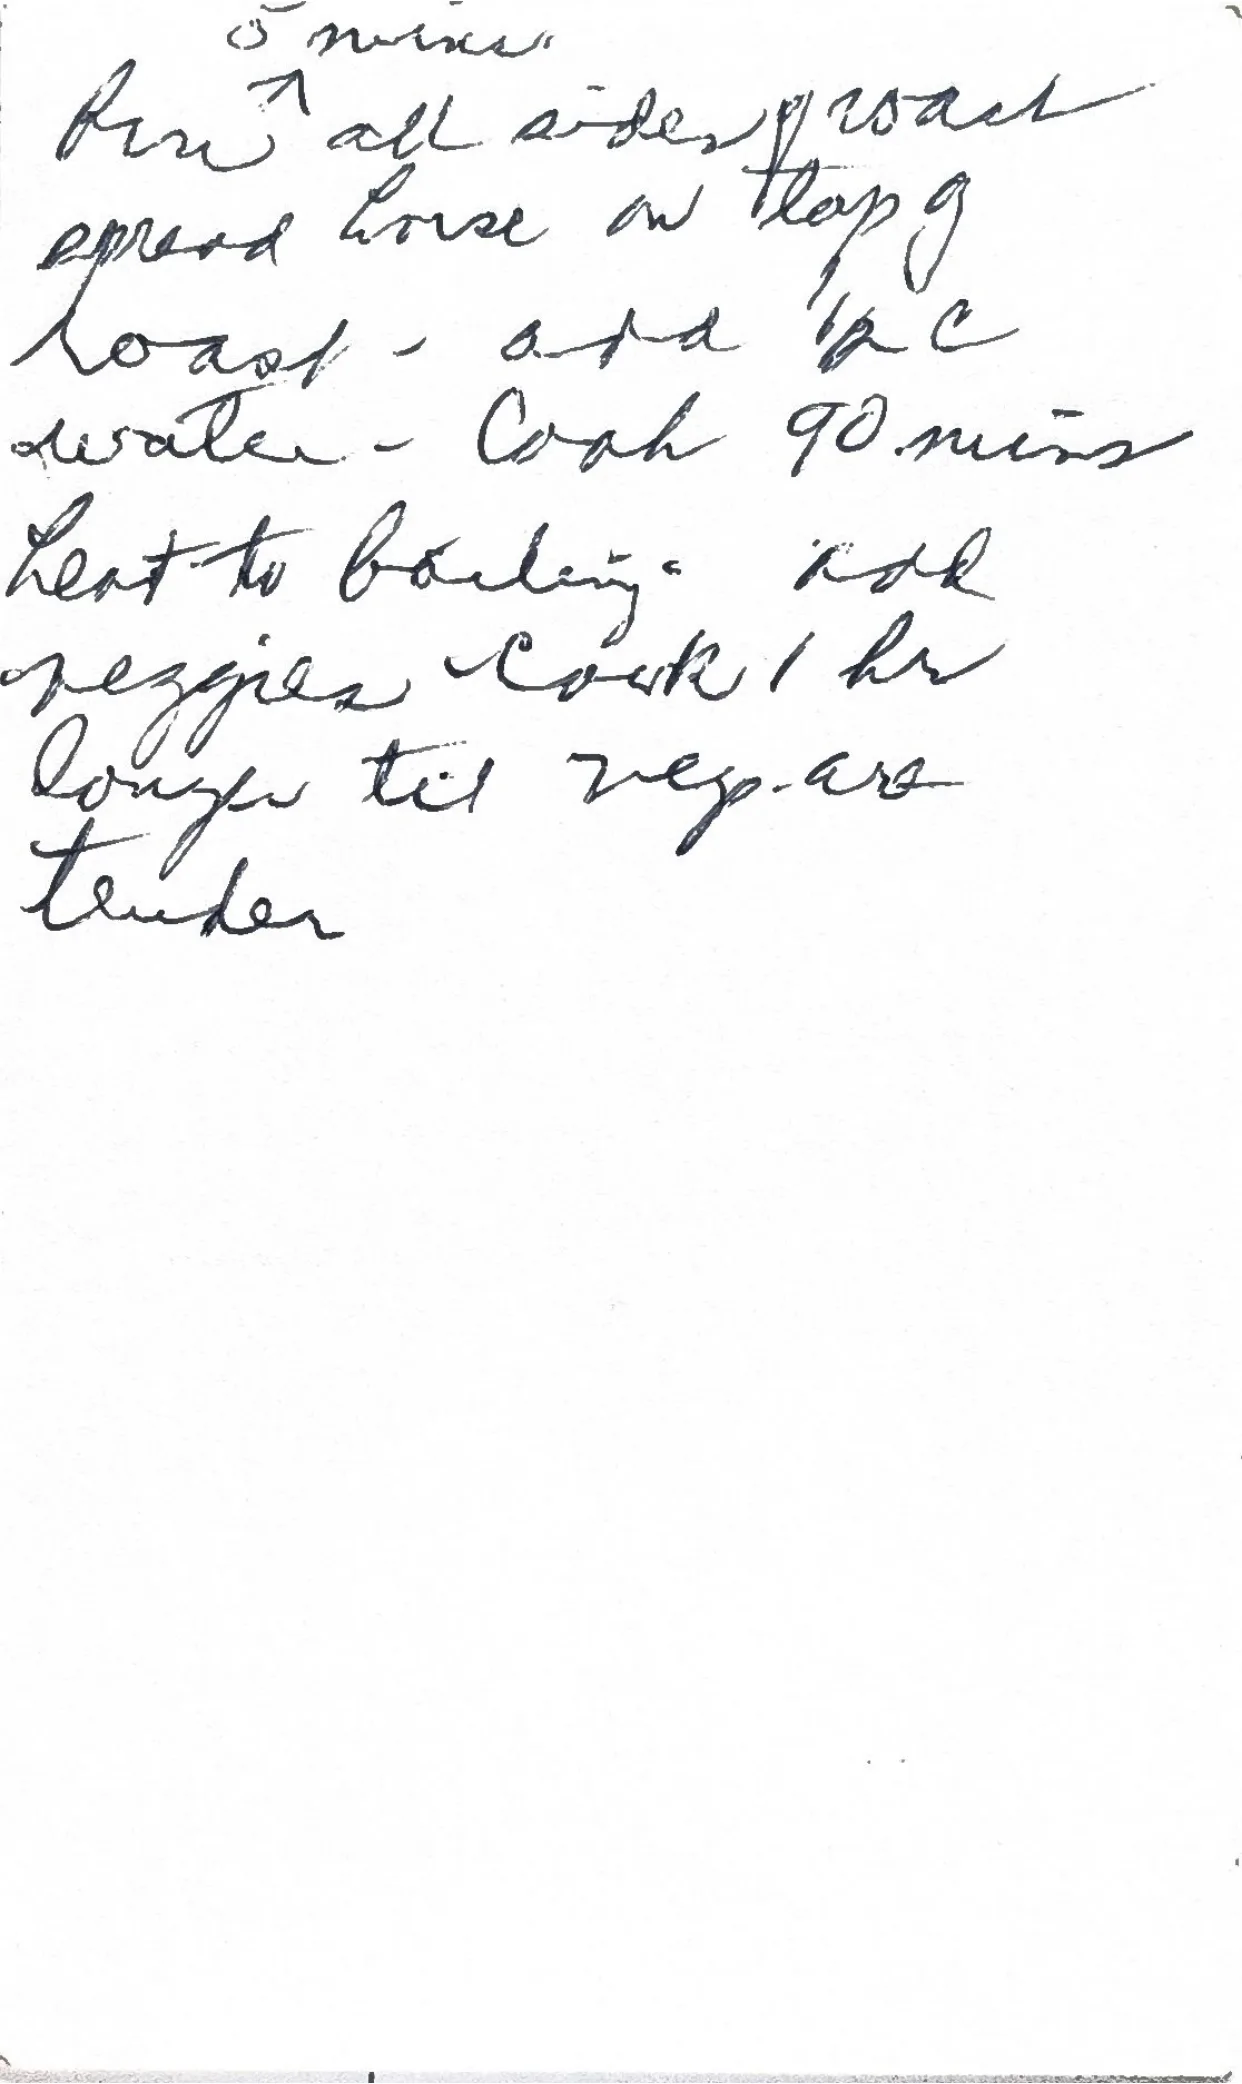 5 mins
Brn ^ all sides of roast
spread horse on top of
roast - add 1/2 C
water - Cook 90 mins
heat to boiling. add
veggies - Cook 1 hr
longer til veg. are
tender